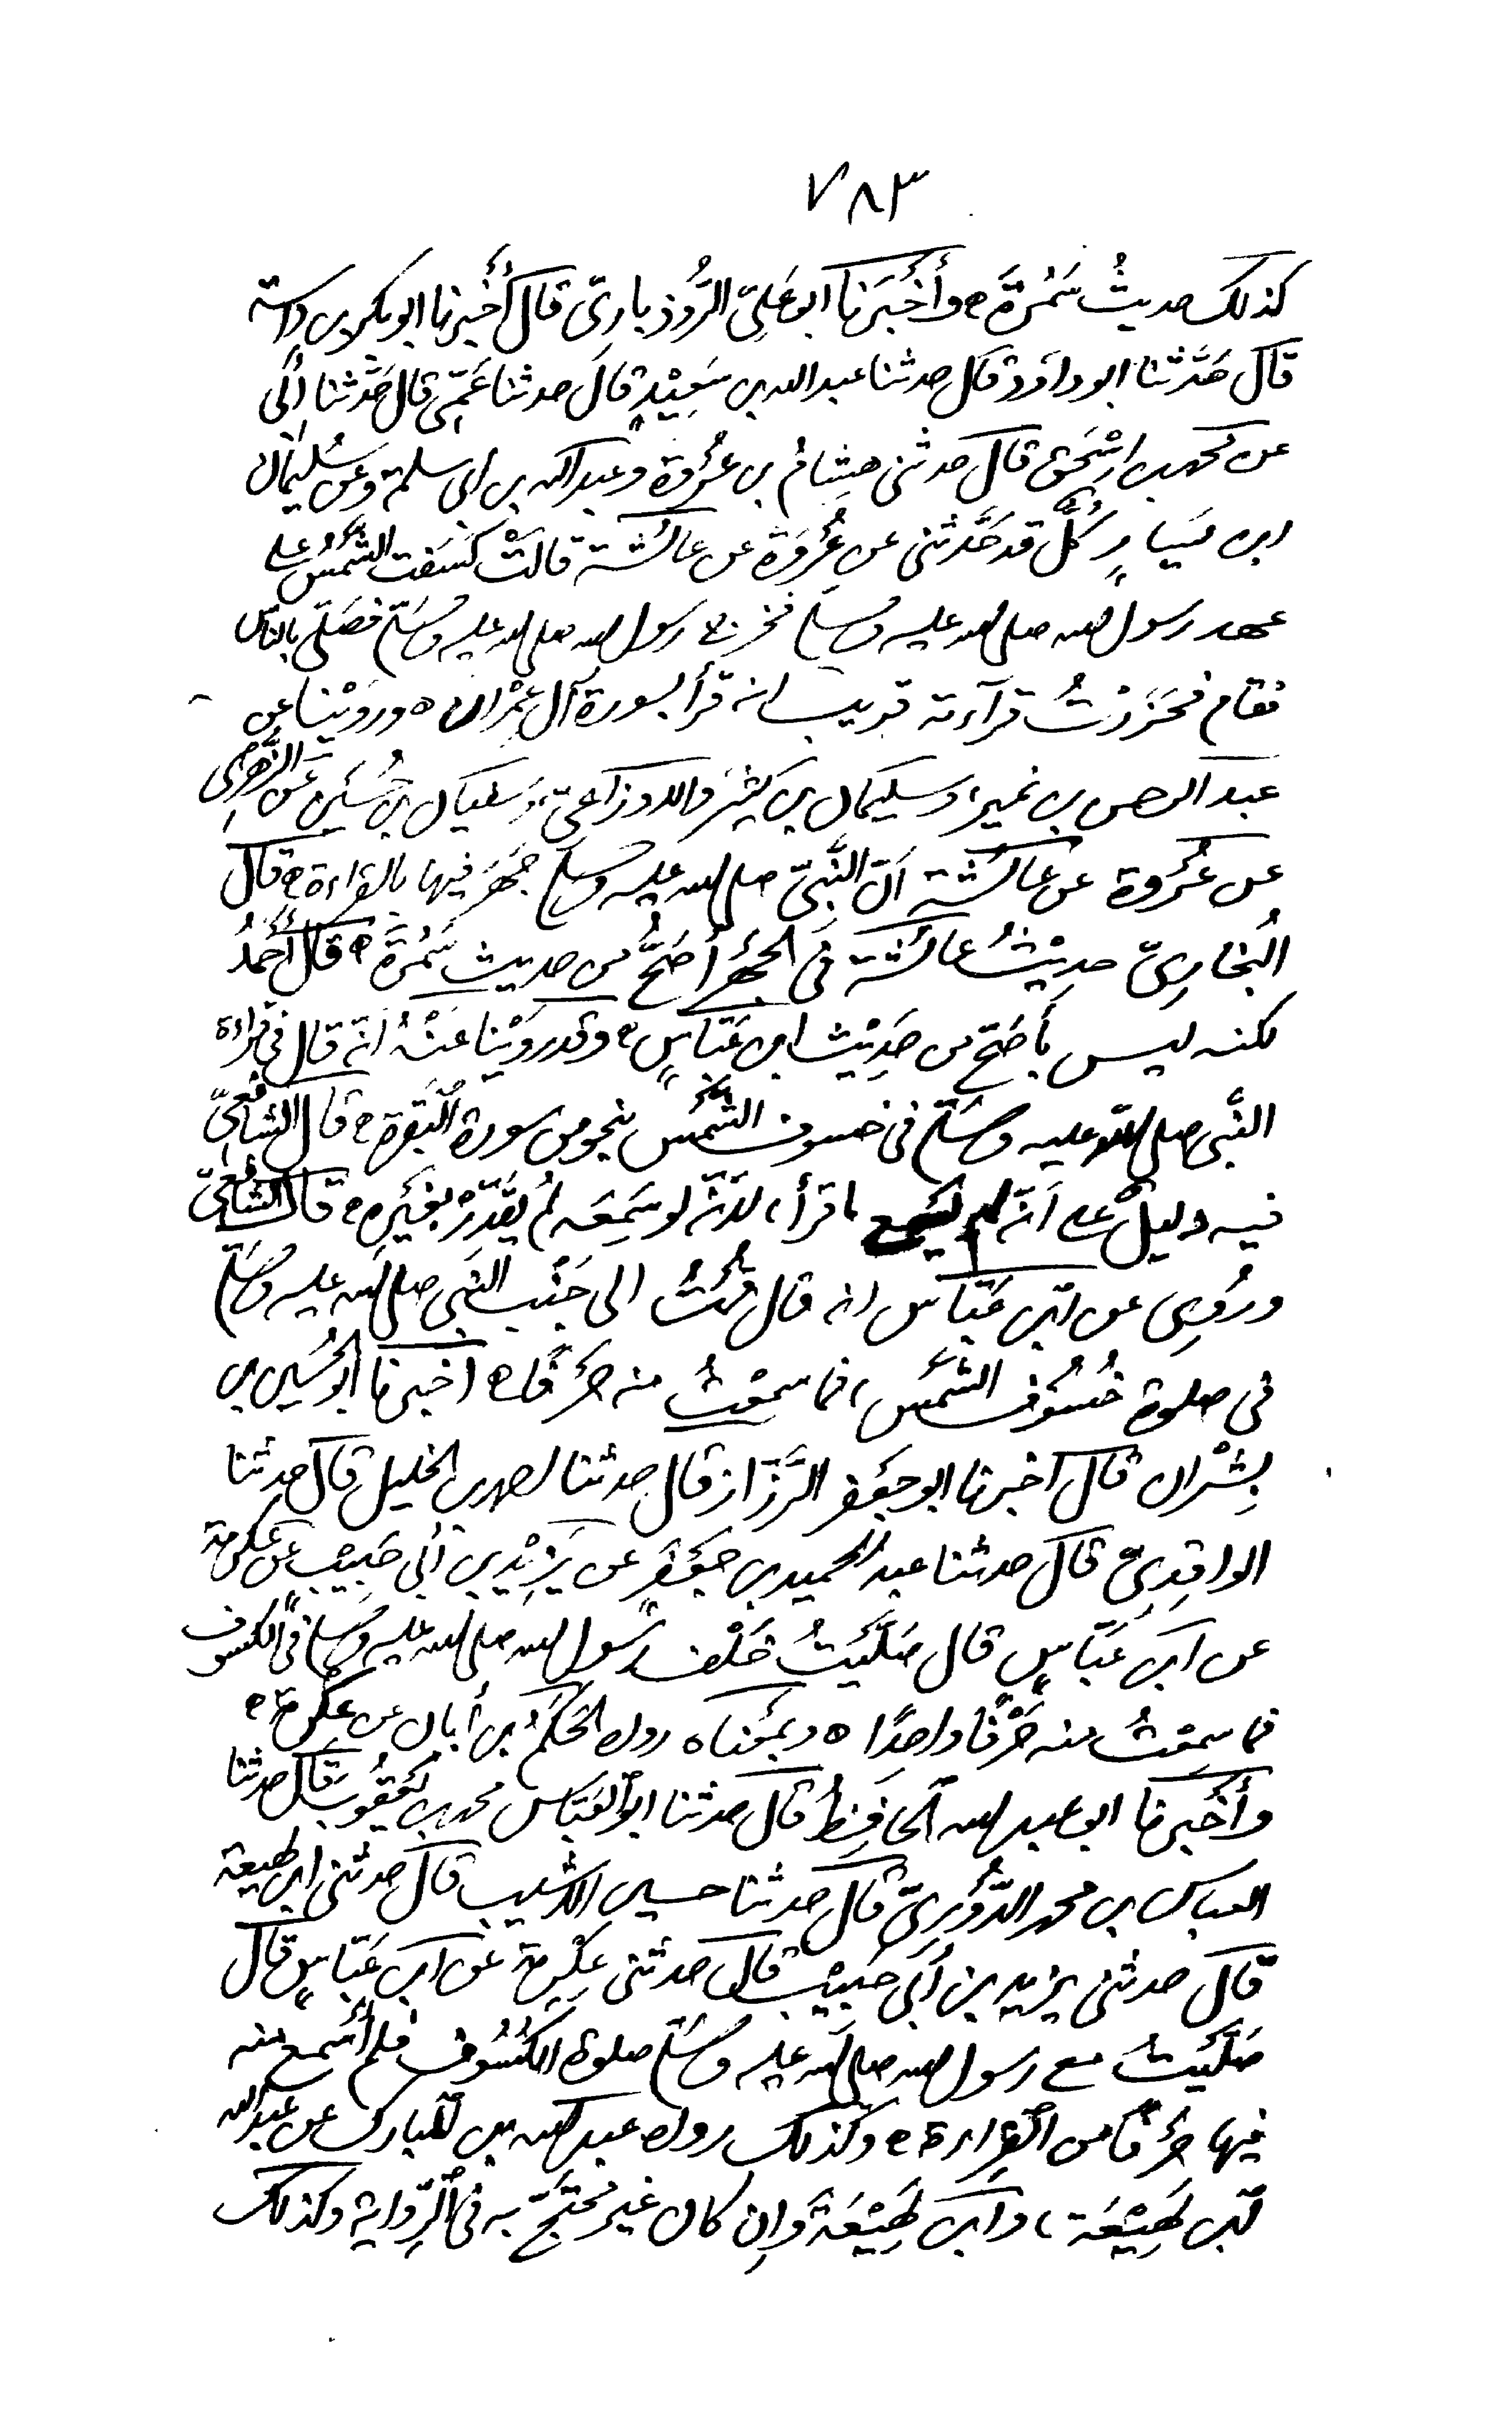 ٧٨٣
كذلك حديثُ سَمُرَةَ ه وأَخْبَرَنا ابو عَلِيّ الرُّوذباريّ قال أَخْبرنا ابو بكر بن داسة
قال حَدَّثنا ابو داوَد قال حدثنا عبد الله بن سَعِيْدٍ قال حدثنا عَمّي قال حَدَّثنا أبي
عن محمد بن اِسْحٰق قال حدثنى هِشامُ بن عُرْوة وعبد الله بن ابى سلمة وعن سُلَيْمان
ابن يَسَارٍ كُلٌّ قد حَدَّثنى عن عُرْوَة عن عائشة قالَتْ كَسَفَت الشَّمْسُ على
عهد رسول الله صلى الله عليه وسلم فخرج رسول الله صلى الله عليه وسَلَّم فَصَلّى بالناس
فقام فَحَزَرْتُ قرآءته قريب انه قرأ بسورة آل عِمْران ه ورَوَيْنا عن
عبد الرحمن بن نمير، وسليمان بن كثير والاوزاعى، وسفيان بن حُسَين عن الزُّهْرِى
عن عُرْوة عن عائشة أنّ النَّبِىّ صلى الله عليه وسلم جَهَرَ فيها بالقراءة ه قال
البُخارِىّ حدِيْثُ عائشة فى الجَهْر أَصَحُّ من حديث سَمُرَةَ ه قال أَحْمَدُ
لكنه ليس بأصَحّ من حَدِيْث ابن عَبّاسٍ ه وقد روَيْنا عَنْهُ انّه قال فى قراءة
النَّبى صلى الله عليه وسَلّم فى خسوف الشَّمْسِ بنحو من سورة البَقَرة ه قال الشافعىّ
فيه دليلٌ على اَنّه لم يَسْمَع ما قرأ، لانّه لو سَمِعَه لم يُقَدِّرْ بغَيْرِه ه قال الشافعىّ
ورُوِىَ عن ابن عَبّاس انه قال قُمْتُ الى جَنْب النبى صلى الله عليه وسَلّم
فى صلوة خُسُوْف الشَّمْس، فما سمعْتُ منه حَرْفًا ه اخبرنا ابو الحُسَين بن
بِشْران قال اخبرنا ابو جعفر الرَّزّاز قال حدثنا احمد بن الخليل قال حدثنا
الواقدِىّ قال حدثنا عبد الحميد بن جَعْفَر عن يَزِيْد بن أبى حَبِيْب عن عكرمة
عن ابن عَبّاسٍ قال صَلَّيْتُ خَلْف رسُول الله صلى الله عليه وسلم فى الكسوف
فما سمِعْتُ منه حَرْفًا واحِدًا ه وبمَعْناه رواه الحَكَمُ بن أبان عن عِكْرمة ه
وأخْبرنا ابو عبد الله الحافِظُ قال حدثنا ابو العَبّاس محمد بن يَعْقُوب قال حدثنا
العباس بن محمد الدُّوْرِىّ قال حدثنا حسين الاشيب قال حدثنى ابن لهيعة
قال حدثنى يزيد بن أبى حَبِيْب قال حدثنى عِكْرِمة عن ابن عَبّاسٍ قال
صَلَّيْتُ مع رسول الله صلى الله عليه وسَلّم صلوة الكُسُوْف فلم أَسْمع منه
فيها حَرْفًا من القِراءة ه وكذلك رواه عبد الله بن المبارك عن عبد الله
بن لَهِيْعَة، وابن لَهِيْعَةَ وَاِن كان غير محتَجّ به فى الرِّواية وكذلك